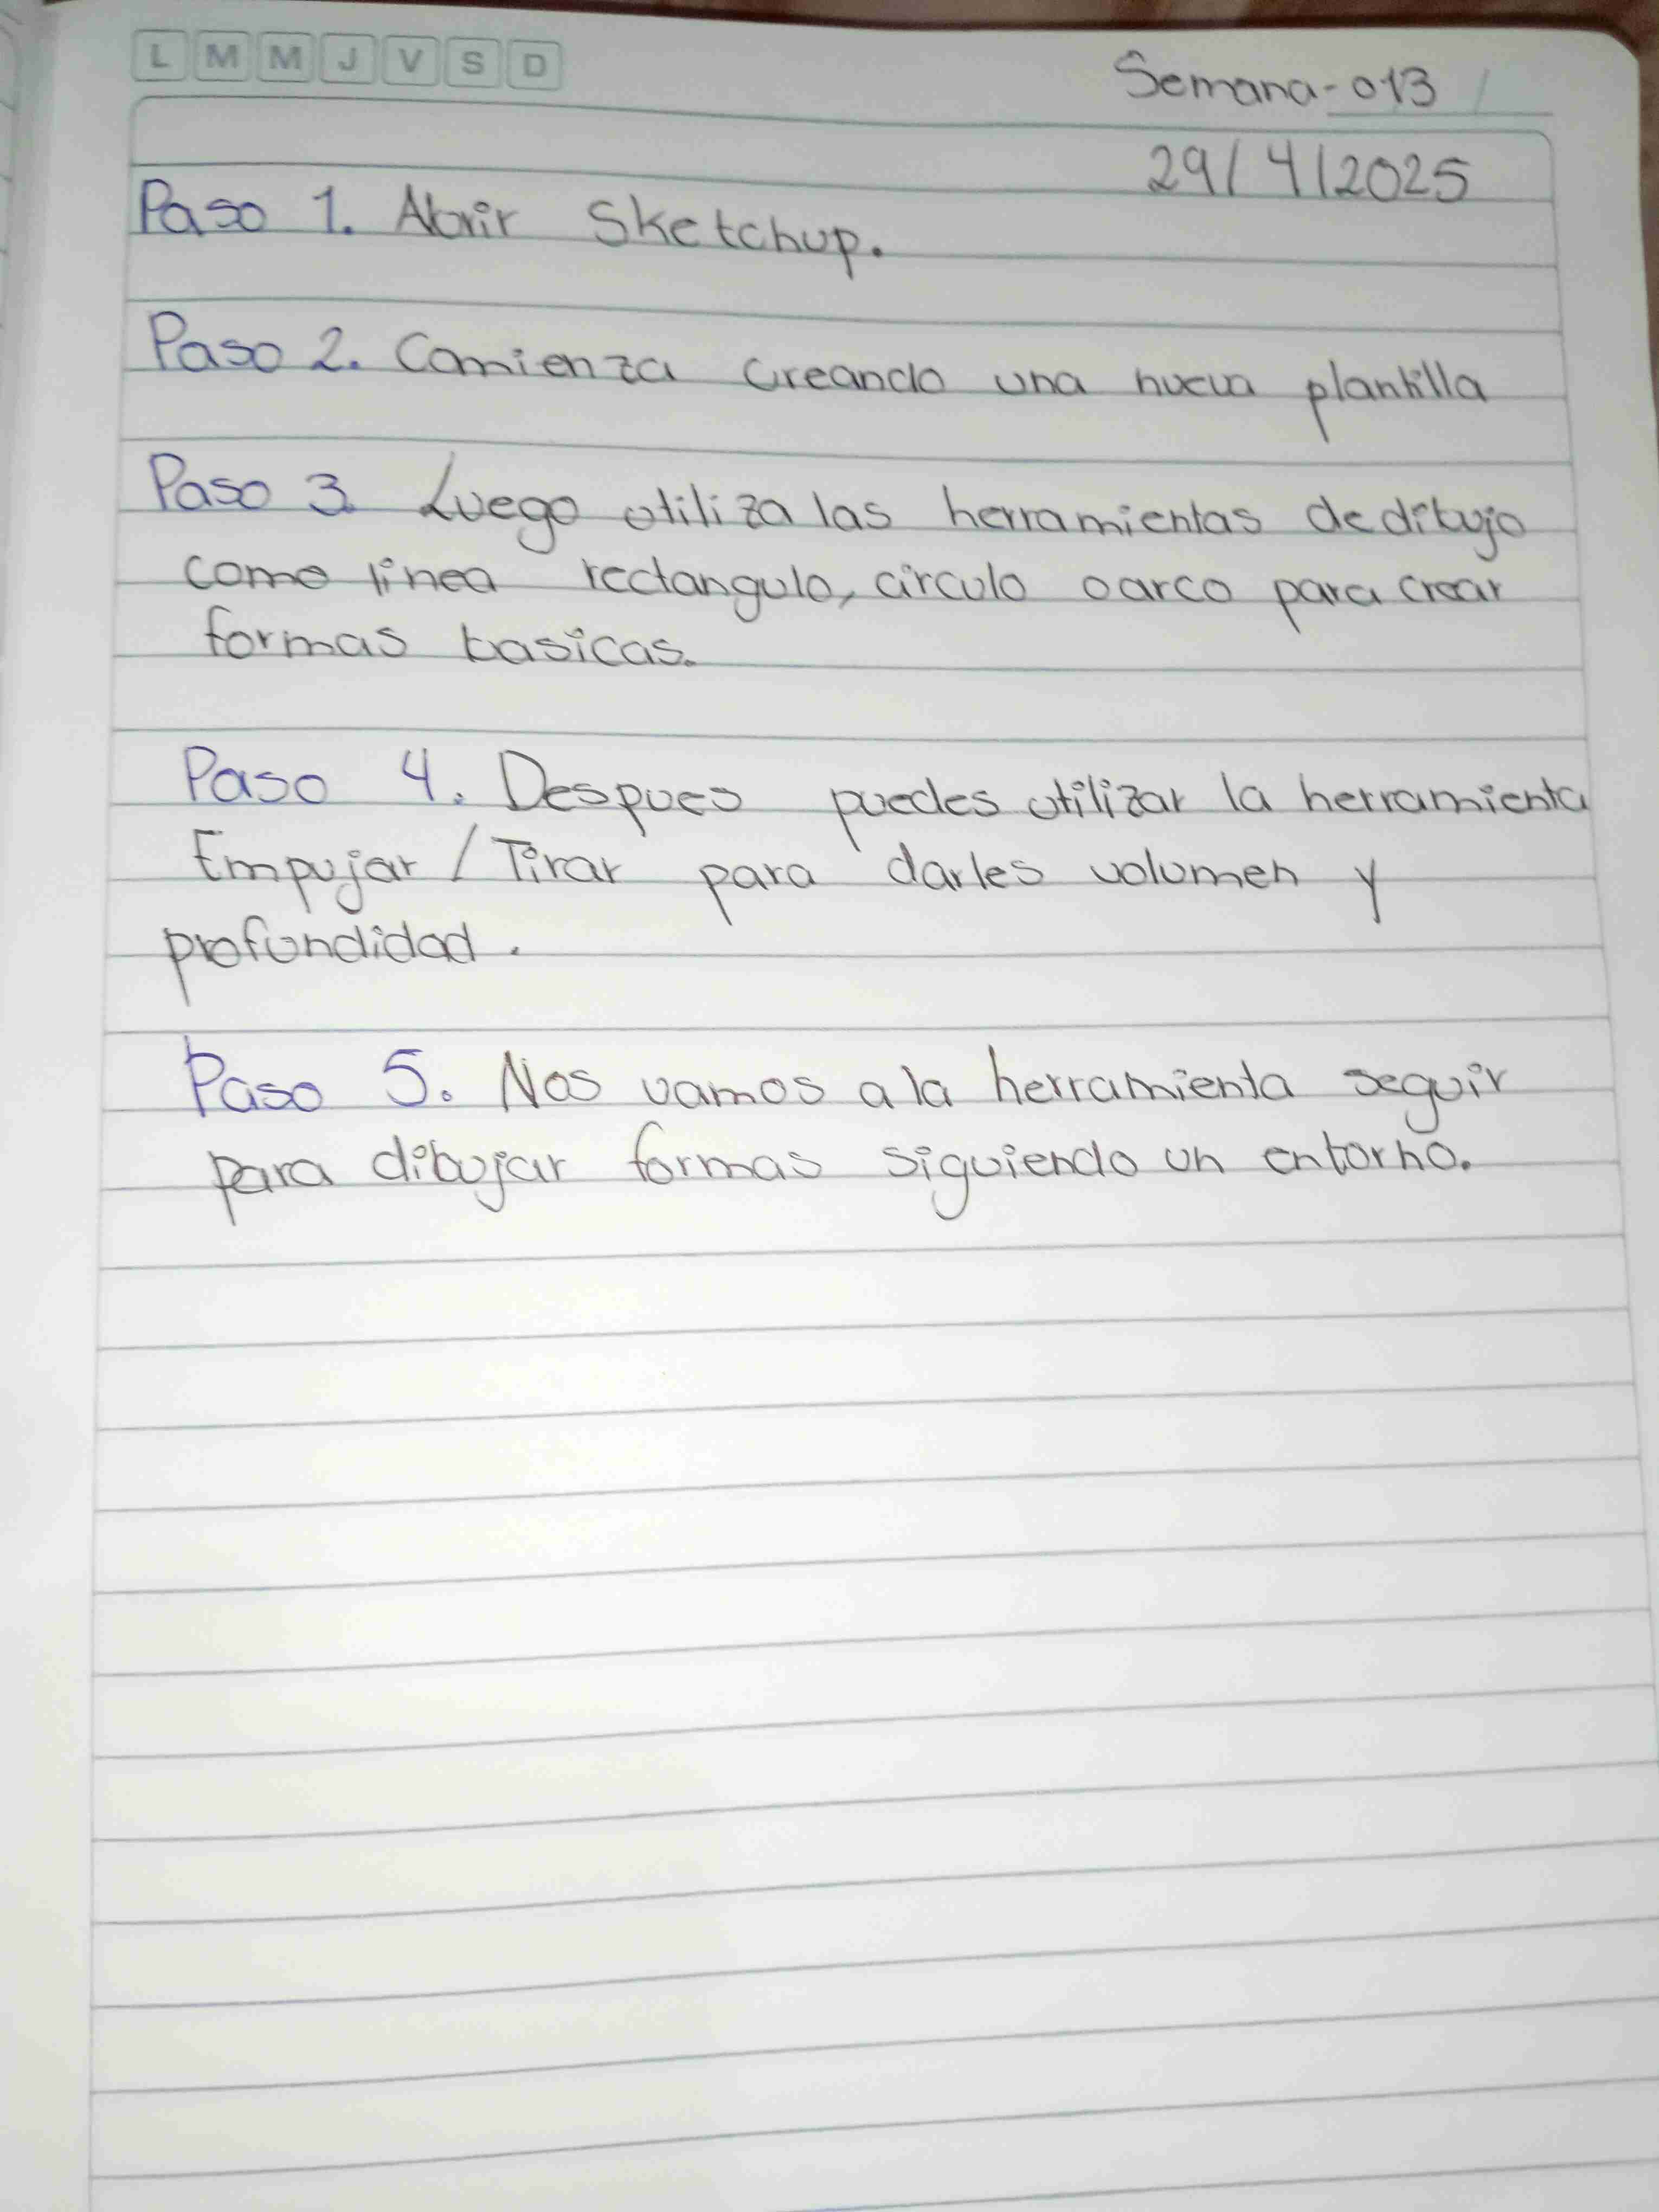 L M M J V S D
Semana-013
29/4/2025
Paso 1. Abrir Sketchup.
Paso 2. Comienza creando una nueva plantilla
Paso 3. Luego utiliza las herramientas de dibujo
como linea rectangulo, circulo o arco para crear
formas basicas.
Paso 4. Despues puedes utilizar la herramienta
Empujar / Tirar para darles volumen y
profundidad.
Paso 5. Nos vamos a la herramienta seguir
para dibujar formas siguiendo un entorno.